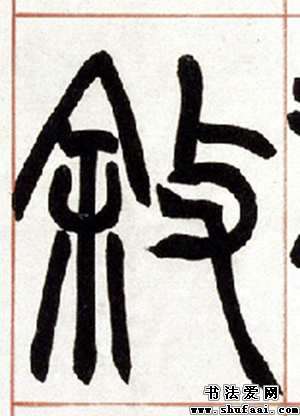 敘
书法爱网
www.shufaai.com